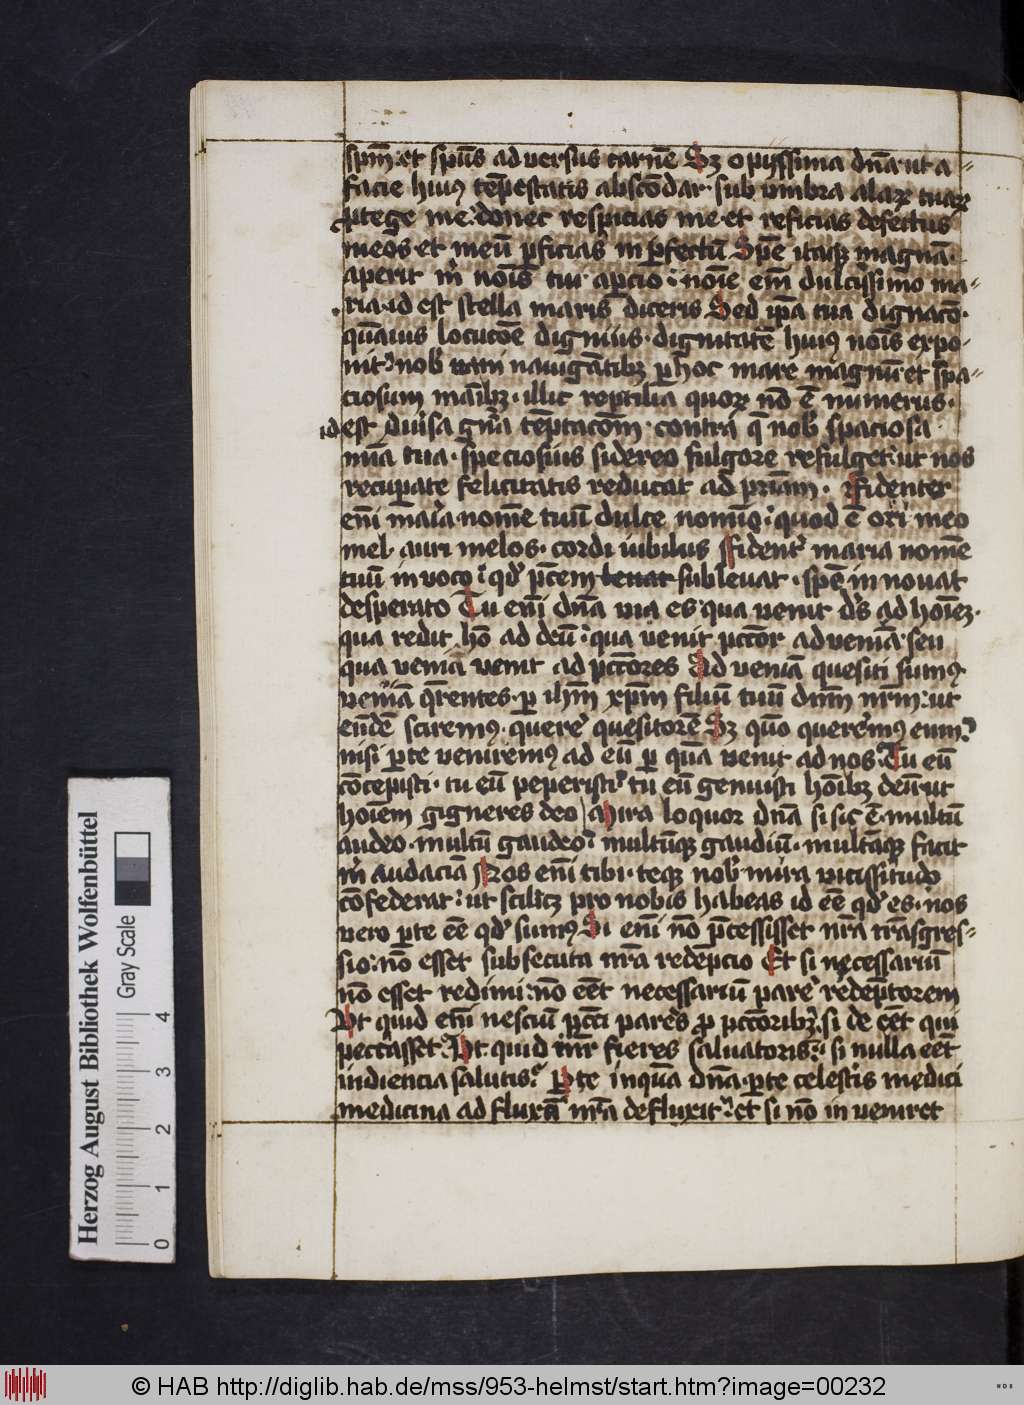 spm̄ et spūs adversus carnē Sz o pyssima dn̄a ut a-
facie huiꝰ tēpestatis abscōdar sub umbra alaꝝ tuaꝝ
ꝓtege me donec respicias me et reficias defectus
meos et meū ꝑficias inꝑfectū Spē itaqꝫ magnā
aperit m̄ nōis tui apercio nōīe em̄ dulcissimo ma-
ria id est stella maris diceris Sed ip̄a tua dignacō
quāuis locucōe digniꝰ dignitatē huiꝰ nōis expo-
nit nob̄ nauigātibꝫ ꝑ hoc mare magnū et spa-
ciosum māibꝫ illic reptilia quoꝝ nō ē numerus
id est diu'sa gn̄a tēptacōm contra q̄ nob̄ spaciosa
mīa tua speciosius sidereo fulgore refulget ut nos
recuꝑate felicitatis reducat ad pr̄iam ꝯfidenter
em̄ maria nomē tuū dulce nomīo quod ē ori meo
mel auri melos cordi iubilus ꝯfident' maria nomē
tuū inuoco qd' pctēm leuat subleuat spē innouat
desperato Tu em̄ dn̄a via es qua venit d's ad hoīeꝫ
qua redit hō ad deū qua venit pctōr ad veniā seu
qua venia venit ad pctōres Ad veniā quesiti sumꝰ
veniā q̄rentes ꝑ ihm̄ xp̄m filiū tuū dnm̄ nr̄m ut
eūdē sciremꝰ quere' quesitorē Sz quō queremꝰ eum
nisi ꝑ te veniremꝰ ad eū ꝑ quā venit ad nos Tu eū
cōcepisti tu eū peperisti tu eū genuisti hoībꝫ deū ut
hoīem gigneres deo Mira loquor dn̄a si sic ē multū
audeo multū gaudeo multūqꝫ gaudiū multāqꝫ facit
m̄ audaciā Nos em̄ tibi teqꝫ nob̄ mira vicissitudo
cōfederat ut scilicꝫ pro nobis habeas id eē qd' es nos
vero ꝑ te eē qd' sumꝰ Si em̄ nō p̄cessisset nr̄a trāsgres-
sio nō esset subsecuta nr̄a redēpcio Et si necessariū
nō esset redimi nō eēt necessariū pare' redēptorem
Vt quid em̄ nesciū pctī pares ꝓ pctōribꝫ si de eēt qui
peccasset Vt quid mr̄ fieres saluatoris si nulla eēt
indiencia salutis ꝑ te inquā dn̄a ꝑ te celestis medici
medicina ad flux' nr̄a defluxit et si nō inveniret
© HAB http://diglib.hab.de/mss/953-helmst/start.htm?image=00232
Herzog August Bibliothek Wolfenbüttel
Gray Scale
0 1 2 3 4